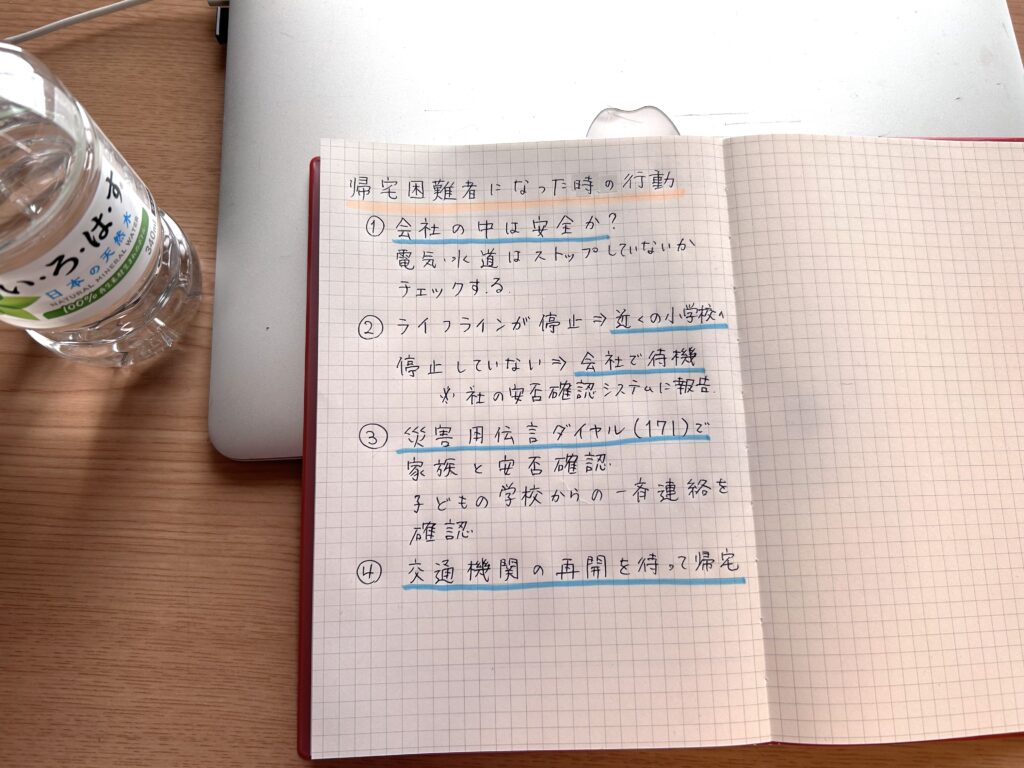 い・ろ・は・す
日本の天然水
NATURAL MINERAL WATER
340ml
100%
帰宅困難者になった時の行動
① 会社の中は安全か?
電気・水道はストップしていないか
チェックする.
② ライフラインが停止⇒近くの小学校へ
停止していない⇒会社で待機
※社の安否確認システムに報告.
③ 災害用伝言ダイヤル(171)で
家族と安否確認.
子どもの学校からの一斉連絡を
確認.
④ 交通機関の再開を待って帰宅